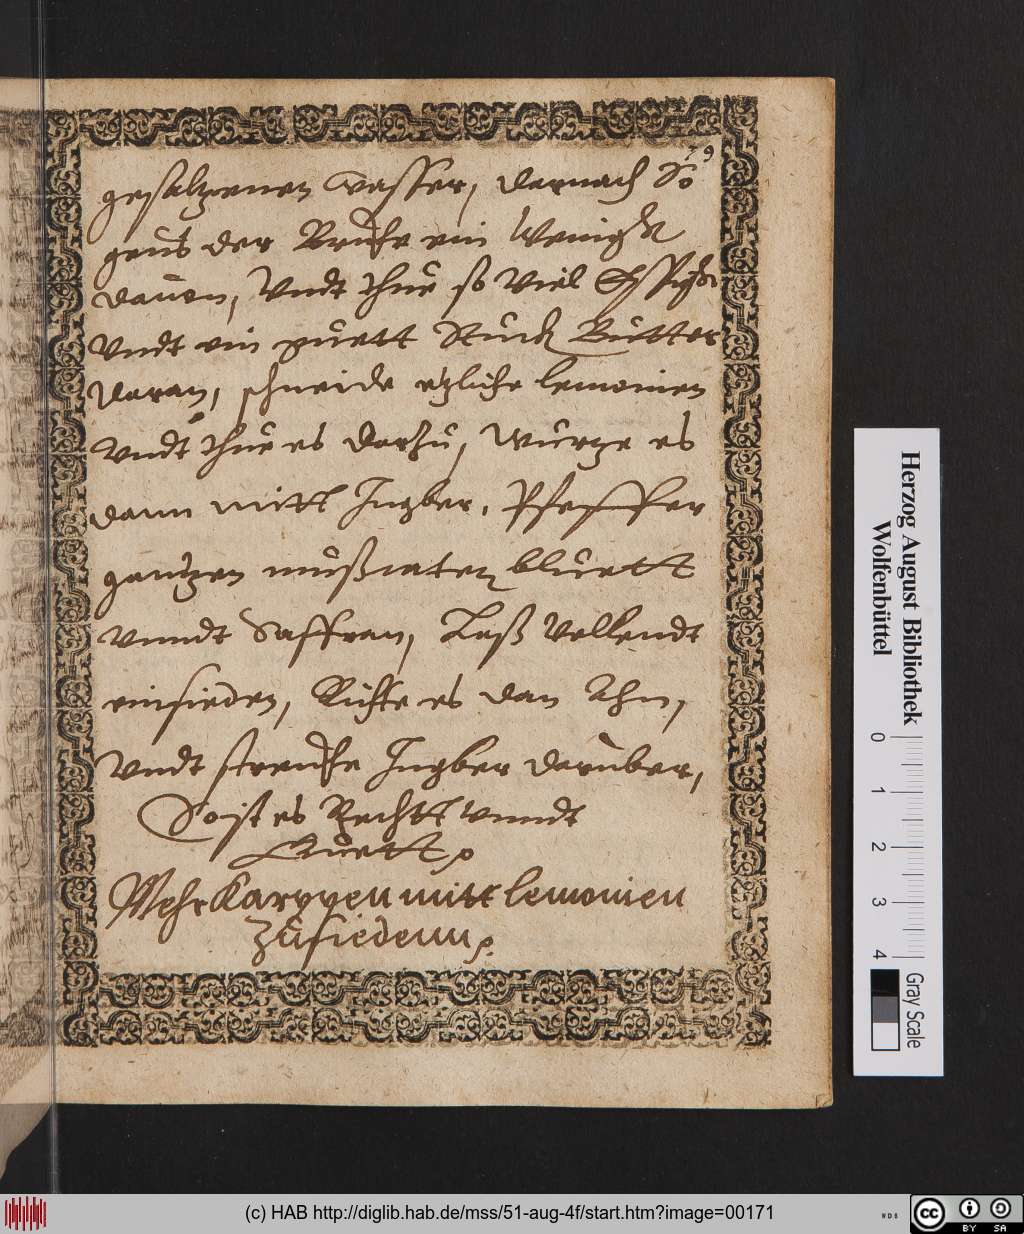 79
gesaltzenen wasser, darnach so
geus der Bruhe ein wenigk
dauon, Vndt thue so viel Essigk
Vndt ein guett Stuck Butter
daran, schneide etzliche lemonien
Vndt thue es darzu, wurtze es
dann mitt Ingber, Pfeffer
gantzen mußcaten bluett
vnndt Saffran, Laß Vollendt
einsieden, Richte es dan Ahn,
Vndt streuhe Ingber daruber,
So ist es Rechtt vnndt
Guett.
Mehr Karppen mitt lemonien
Zusiedenn.
Herzog August Bibliothek
Wolfenbüttel
0 1 2 3 4
Gray Scale
(c) HAB http://diglib.hab.de/mss/51-aug-4f/start.htm?image=00171
WDB
cc BY SA